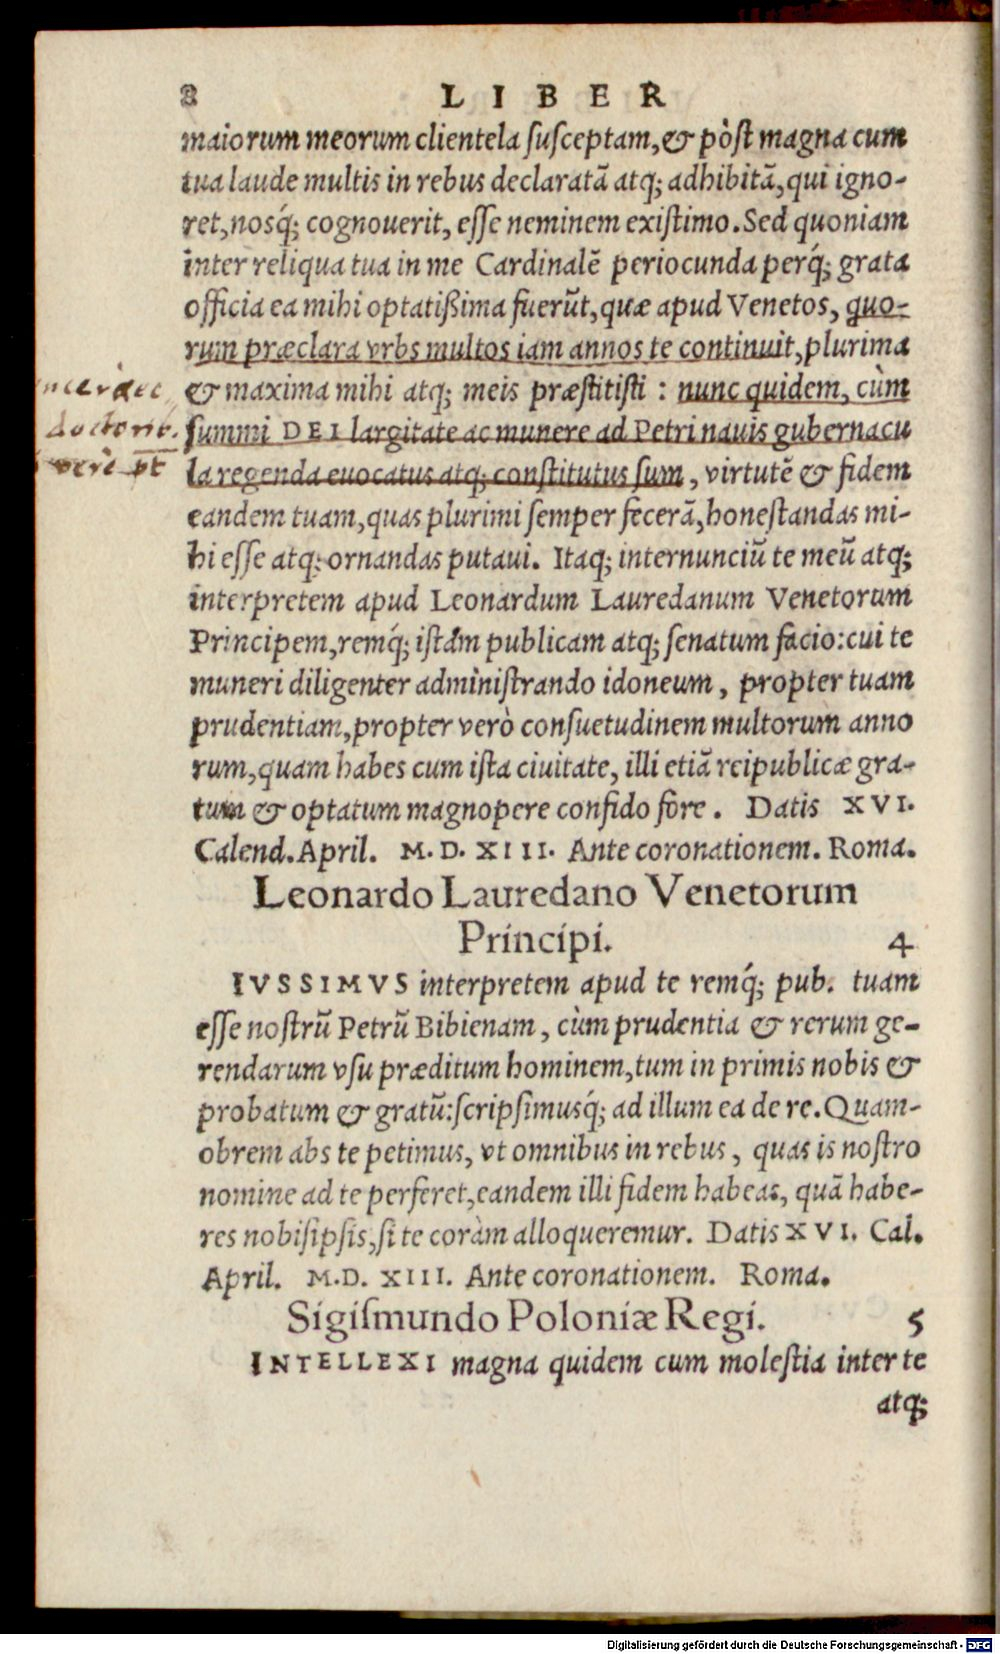 8 LIBER
maiorum meorum clientela ſuſceptam, & pòſt magna cum
tua laude multis in rebus declaratã atq; adhibitã, qui igno-
ret, nosq́; cognouerit, eſſe neminem exiſtimo. Sed quoniam
inter reliqua tua in me Cardinalẽ periocunda perq́; grata
officia ea mihi optatißima fuerũt, quæ apud Venetos, quo-
rum præclara vrbs multos iam annos te continuit, plurima
& maxima mihi atq; meis præſtitiſti : nunc quidem, cùm
ſummi DEI largitate ac munere ad Petri nauis gubernacu
la regenda euocatus atq; conſtitutus ſum, virtutẽ & fidem
eandem tuam, quas plurimi ſemper fecerã, honeſtandas mi-
hi eſſe atq; ornandas putaui. Itaq; internunciũ te meũ atq;
interpretem apud Leonardum Lauredanum Venetorum
Principem, remq́; iſtam publicam atq; ſenatum facio: cui te
muneri diligenter adminiſtrando idoneum, propter tuam
prudentiam, propter verò conſuetudinem multorum anno
rum, quam habes cum iſta ciuitate, illi etiã reipublicæ gra-
tum & optatum magnopere confido fore. Datis XVI.
Calend. April. M. D. XIII. Ante coronationem. Roma.
Leonardo Lauredano Venetorum
Principi. 4
IVSSIMVS interpretem apud te remq́; pub. tuam
eſſe noſtrũ Petrũ Bibienam, cùm prudentia & rerum ge-
rendarum vſu præditum hominem, tum in primis nobis &
probatum & gratũ: ſcripſimusq́; ad illum ea de re. Quam-
obrem abs te petimus, vt omnibus in rebus, quas is noſtro
nomine ad te perferet, eandem illi fidem habeas, quã habe-
res nobiſipſis, ſi te coràm alloqueremur. Datis XVI. Cal.
April. M.D. XIII. Ante coronationem. Roma.
Sigiſmundo Poloniæ Regi. 5
INTELLEXI magna quidem cum moleſtia inter te
atq;
Digitalisierung gefördert durch die Deutsche Forschungsgemeinschaft - DFG